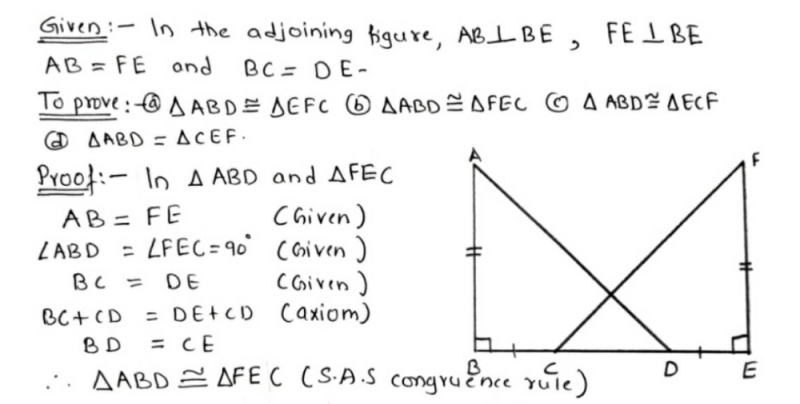 Given:- In the adjoining figure, AB⊥BE, FE⊥BE
AB = FE and BC = DE-
To prove:- ⓐ ∆ABD ≅ ∆EFC ⓑ ∆ABD ≅ ∆FEC ⓒ ∆ABD ≅ ∆ECF
ⓓ ∆ABD = ∆CEF.
Proof:- In ∆ABD and ∆FEC
AB = FE (Given)
∠ABD = ∠FEC = 90° (Given)
BC = DE (Given)
BC+CD = DE+CD (axiom)
BD = CE
∴ ∆ABD ≅ ∆FEC (S.A.S congruence rule)
A F
B C D E